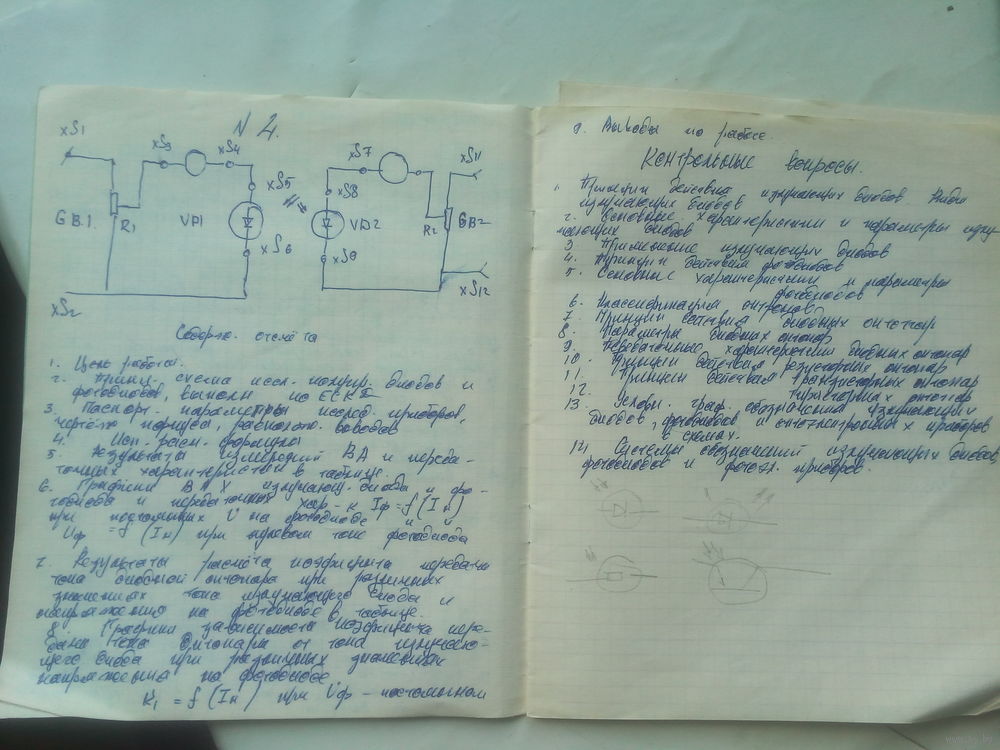 N 4.
xS1
xS3
xS4
xS5
xS6
GB1
R1
VD1
xS2
xS7
xS8
xS9
VD2
R2
GB2
xS11
xS12
Содерж. отчёта
1. Цель работы.
2. Принц. схема иссл. излучр. диодов и
фотодиодов, выполн по ЕСКД
3. Паспорт. параметры исслед. приборов,
чертёж корпуса, располож. выводов
4. Исп. расч. формулы
5. Результаты измерений ВА и переда-
точных характеристик в таблице.
6. Графики ВАХ излучающ. диода и фо-
тодиода и передаточных хар-к Iф = f(Iн)
при постоянных U на фотодиоде и
Uф = f(Iн) при нулевом токе фотодиода
7. Результаты расчёта коэфициента передачи
тока диодной оптопара при различных
значениях тока излучающего диода и
напряжению на фотодиоде в таблице.
8. Графики зависимости коэфициента пере-
дачи тока оптопары от тока излучаю-
щего диода при различных значениях
напряжения на фотодиоде
K1 = f(Iн) при Uф - постоянном
9. Выводы по работе.
Контрольные вопросы.
1. Принцип действия излучающих диодов. Виды
излучающих диодов
2. Основные характеристики и параметры излу-
чающих диодов
3. Применение излучающих диодов
4. Принцип действия фотодиодов
5. Основные характеристики и параметры
фотодиодов
6. Классификация оптронов
7. Принцип действия диодных оптопар
8. Параметры диодных оптопар
9. Передаточные характеристики диодных оптопар
10. Принцип действия резисторных оптопар
11. Принцип действия транзисторных оптопар
12. тиристорных оптопар
13. Условн. граф. обозначения излучающих
диодов, фотодиодов и оптоэлектронных приборов
в схемах.
14. Системы обозначений излучающих диодов,
фотодиодов и фотоэл. приборов.